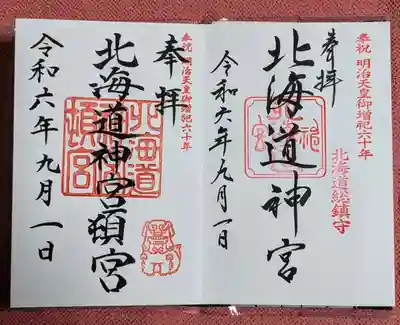 奉祝 明治天皇御増祀六十年
奉拝
北海道神宮
令和六年九月一日
北海道総鎮守
奉祝 明治天皇御増祀六十年
奉拝
北海道神宮頓宮
令和六年九月一日
北海道
神宮
頓宮